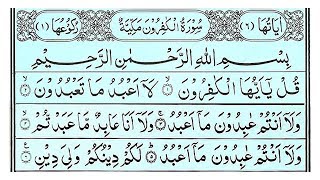 اٰيَاتُهَا (٦) سُوْرَةُ الْكٰفِرُوْنَ مَكِّيَّةٌ رُكُوْعُهَا (١)
بِسْمِ اللّٰهِ الرَّحْمٰنِ الرَّحِيْمِ
قُلْ يٰٓاَيُّهَا الْكٰفِرُوْنَ ۙ لَاۤ اَعْبُدُ مَا تَعْبُدُوْنَ ۙ
وَلَاۤ اَنْتُمْ عٰبِدُوْنَ مَاۤ اَعْبُدُ ۚ وَلَاۤ اَنَا عَابِدٌ مَّا عَبَدْتُّمْ ۙ
وَلَاۤ اَنْتُمْ عٰبِدُوْنَ مَاۤ اَعْبُدُ ؕ لَكُمْ دِيْنُكُمْ وَلِيَ دِيْنِ